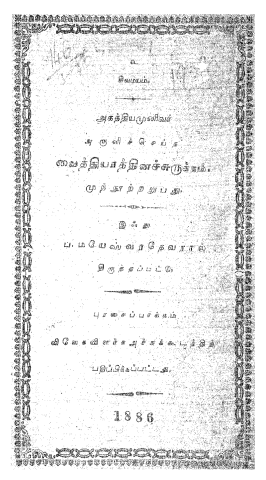 உ
சிவமயம்.
அகத்தியமுனிவர்
அருளிச்செய்த
வைத்தியரத்தினச்சுருக்கம்.
முந்நூற்றறுபது.
இஃது
ப. மயேஸ்வரதேவரால்
திருத்தப்பட்டு
புரசைப்பாக்கம்
விவேகவிளக்கஅச்சுக்கூடத்திற்
பதிப்பிக்கப்பட்டது.
1886